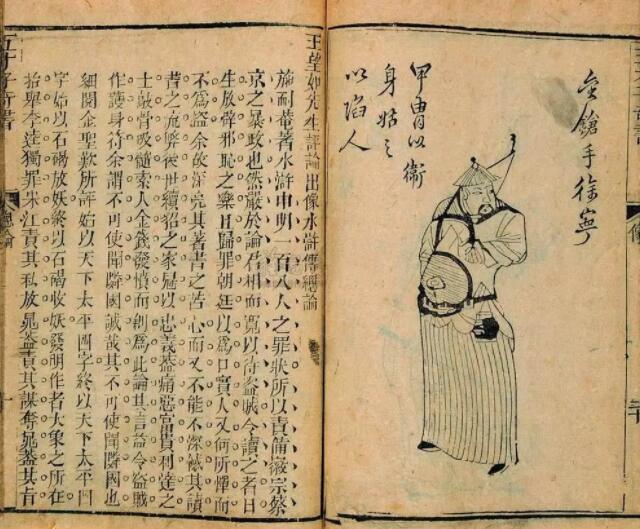 金鎗手徐寧
甲冑以衛
身姑之
以陷人
像
王望如先生評論出像水滸傳總論
施耐菴著水滸申明一百八人之罪狀所以責備徽宗蔡
京之暴政也然嚴於論君相而寬以待盜賊令讀之者日
生放辟邪恥之樂且歸罪朝廷以為口實人又何所憚而
不為盜余故深亮其著書之苦心而又不能不深憾其讀
書之流弊後世續招之家冠以忠義蓋痛惡富貴利達之
士敲骨吸髓索人金錢發憤而創為此論其言益令盜賊
作護身符余謂不可使聞鄰國誠哉其不可使聞鄰國也
細閱金聖歎所評始以天下太平四字終以天下太平四
字始以石碣放妖終以石碣收妖發明作者大象之所在
抬舉李逵獨罪宋江責其私放晁蓋責其謀奪晁蓋其肯
五才子奇書
總論